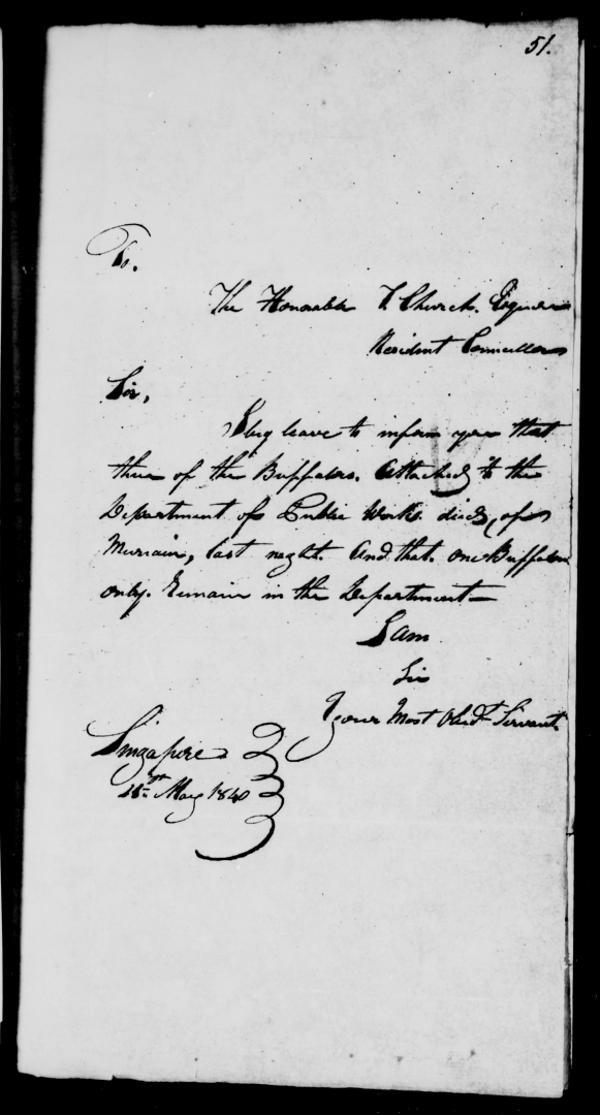 51.
To.
The Honorable T. Church. Esquire
Resident Councellor
Sir,
I beg leave to inform you that
three of the Buffaloes. Attached to the
Department of Public Works. died, of
Murrain, last night. And that. one Buffaloe
only. Remain in the Department—
I am
Sir
Your Most Obedt Servant
Singapore
May 1840